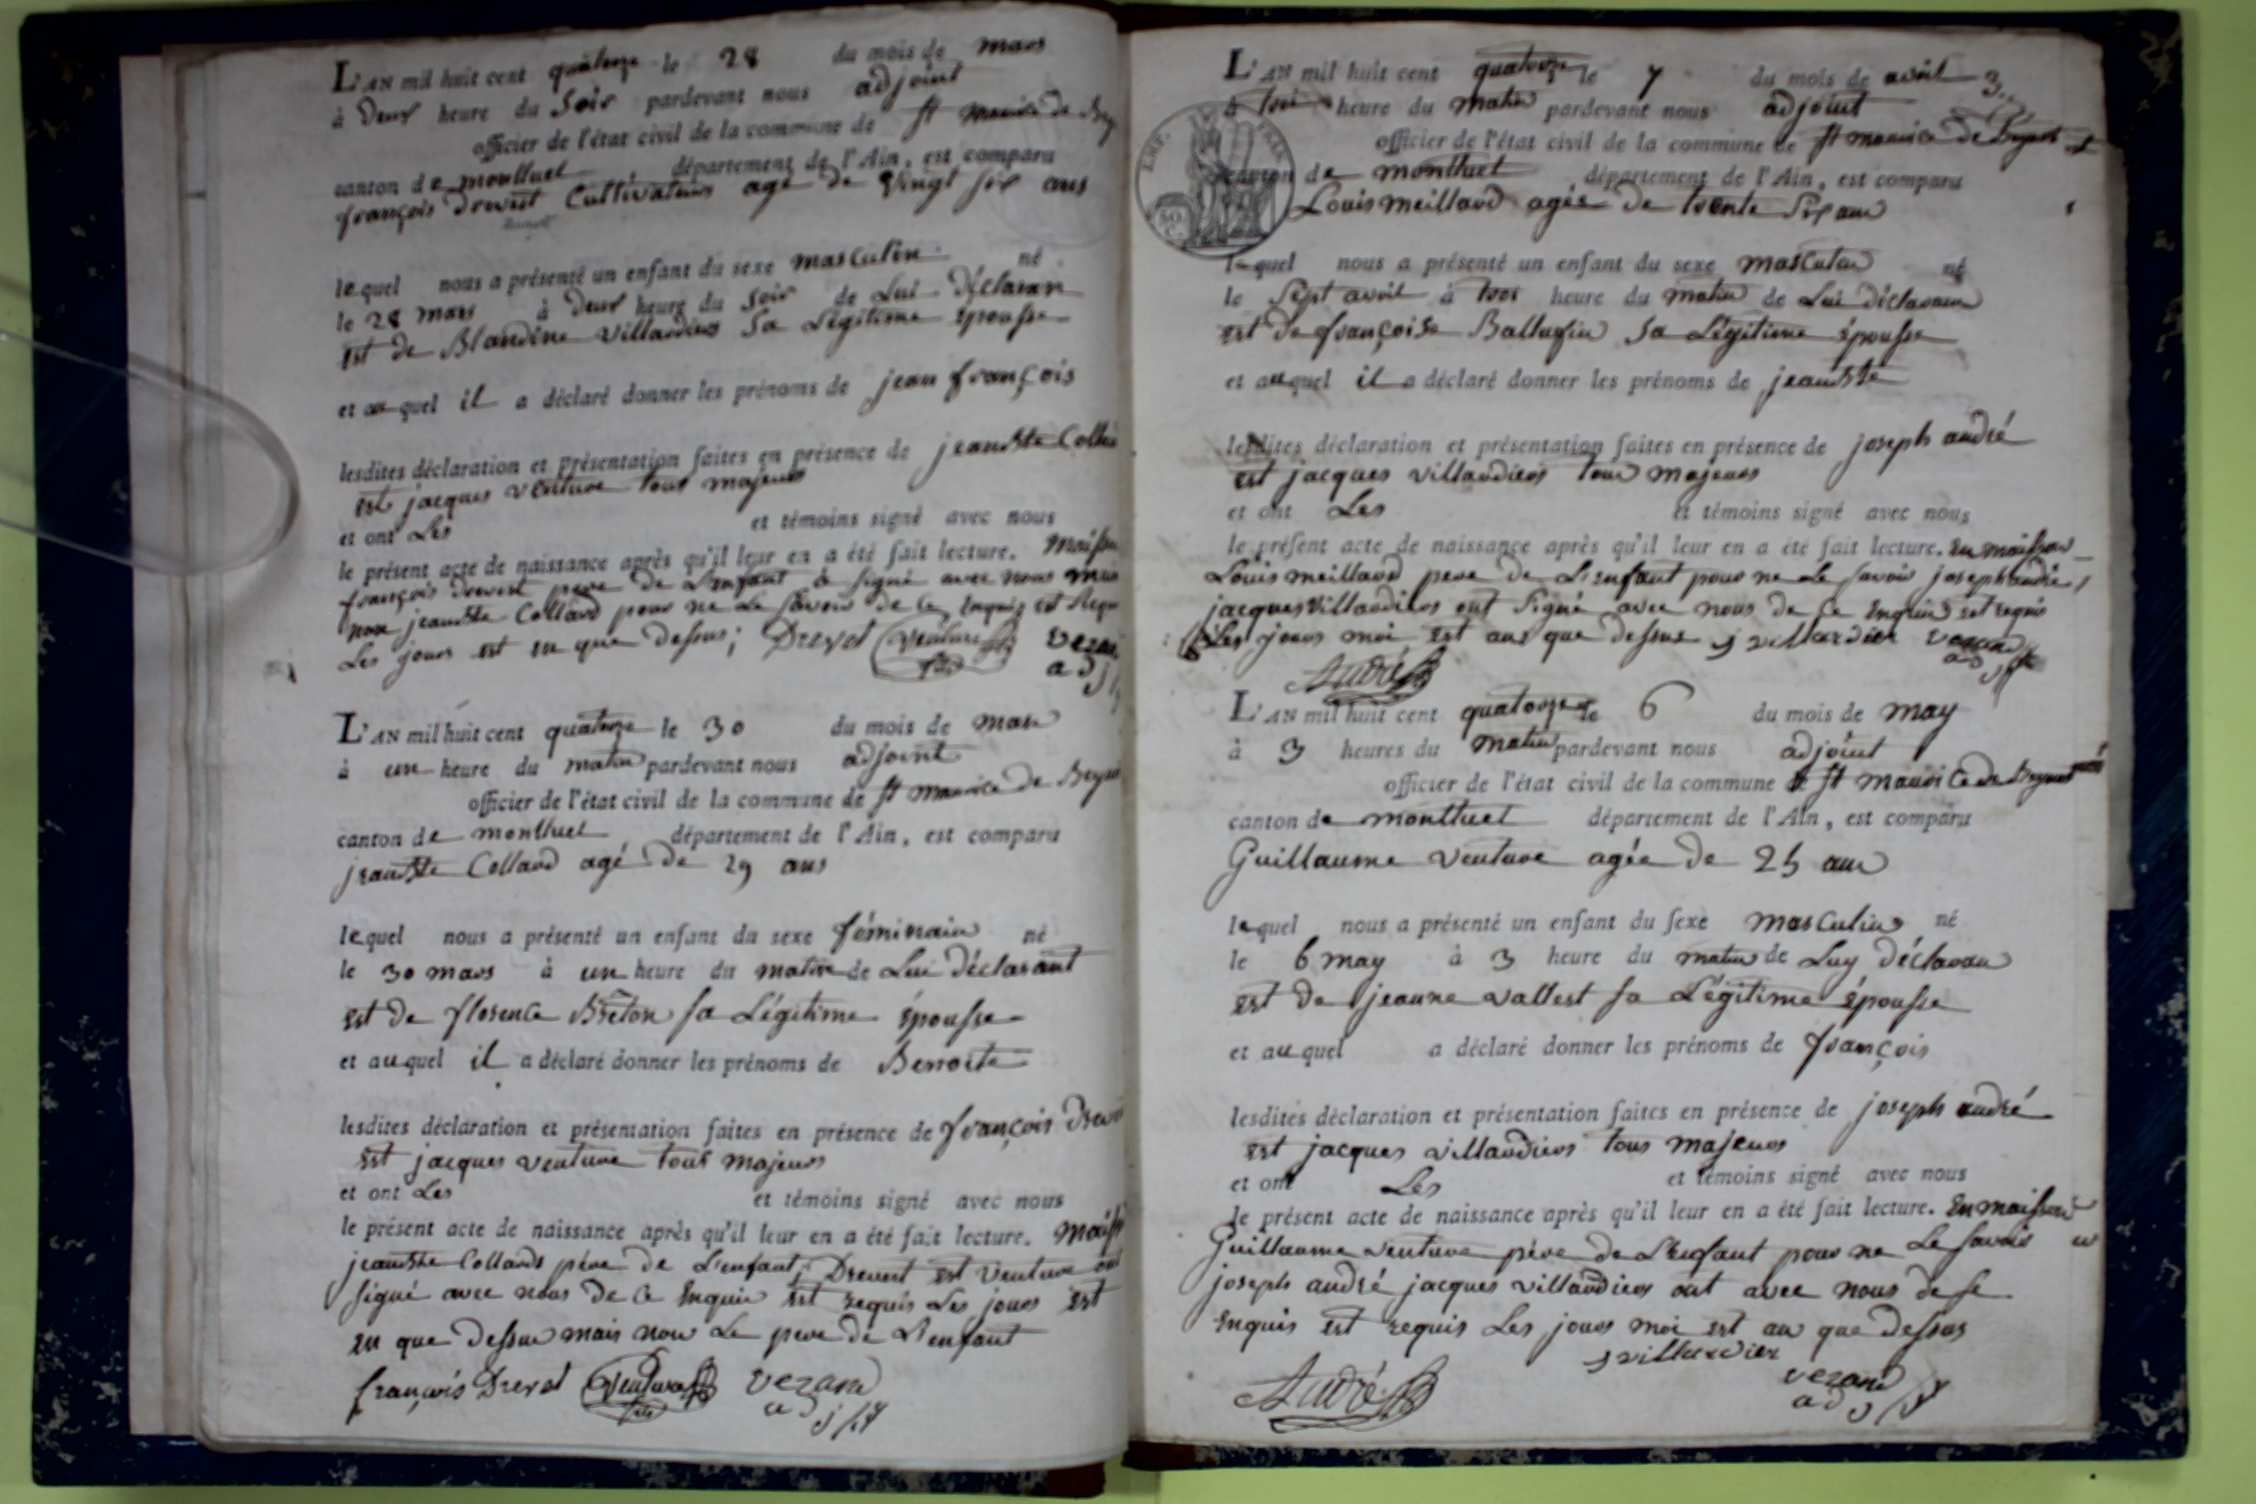 L'AN mil huit cent quatorze le 28 du mois de mars
à deux heure du soir pardevant nous adjoint
officier de l'état civil de la commune de st maurice de Bey
canton de montluel département de l'Ain, est comparu
françois drevet Cultivateur agé de vingt six ans
lequel nous a présenté un enfant du sexe masculin né
le 28 mars à deux heure du soir de Lui déclaran
est de Blandine villardier sa Légitime épousse
et auquel il a déclaré donner les prénoms de jean françois
lesdites déclaration et présentation faites en présence de jeanBte Collar
est jacques venture tous majeurs
et ont Les et témoins signé avec nous
le présent acte de naissance après qu'il leur en a été fait lecture.
françois drevet pere de L'enfant à signé avec nous mais
non jeanBte Collard pour ne Le savoir de ce Enquis est Requi
Les jours est en que dessus; Drevet Venture fils vezan
adj
L'AN mil huit cent quatorze le 30 du mois de mars
à un heure du matin pardevant nous adjoint
officier de l'état civil de la commune de st maurice de Beyn
canton de montluel département de l'Ain, est comparu
jeanBte Collard agé de 29 ans
lequel nous a présenté un enfant du sexe féminain né
le 30 mars à un heure du matin de Lui déclarant
est de florence Breton sa Légitime épousse
et auquel il a déclaré donner les prénoms de Benoite
lesdites déclaration et présentation faites en présence de françois Drev
est jacques venture tous majeurs
et ont Les et témoins signé avec nous
le présent acte de naissance après qu'il leur en a été fait lecture.
jeanBte Collard pére de L'enfant, Drevet est Venture ont
signé avec nous de ce Enquis est requis Les jours est
en que dessus mais non Le pere de L'enfant
françois Drevet Venture fils vezan
adj
L'AN mil huit cent quatorze le 7 du mois de avril 3.
à troi heure du matin pardevant nous adjoint
officier de l'état civil de la commune de st maurice de Beynost
canton de montluel département de l'Ain, est comparu
Louis meillard agée de trente six ans
lequel nous a présenté un enfant du sexe masculin né
le sept avril à troi heure du matin de Lui déclarant
est de françoise Ballufin sa Légitime épousse
et auquel il a déclaré donner les prénoms de jeanBte
lesdites déclaration et présentation faites en présence de joseph andré
est jacques villardier tous majeurs
et ont Les et témoins signé avec nous
le présent acte de naissance après qu'il leur en a été fait lecture.
Louis meillard pere de L'enfant pour ne Le savoir joseph andré,
jacques villardier ont signé avec nous de ce Enquis est requis
Les jours moi est ans que dessus j villardier vezan
adj
André
L'AN mil huit cent quatorze le 6 du mois de may
à 3 heures du matin pardevant nous adjoint
officier de l'état civil de la commune de st maurice de Beynost
canton de montluel département de l'Ain, est comparu
Guillaume venture agée de 25 ans
lequel nous a présenté un enfant du sexe masculin né
le 6 may à 3 heure du matin de Luy déclaran
est de jeanne vallest sa Légitime épousse
et auquel a déclaré donner les prénoms de françois
lesdites déclaration et présentation faites en présence de joseph andré
est jacques villardier tous majeurs
et ont Les et témoins signé avec nous
le présent acte de naissance après qu'il leur en a été fait lecture.
Guillaume venture pére de L'enfant pour ne Le savoir
joseph andré jacques villardier ont avec nous de se
Enquis est requis Les jours moi est an que dessus
j villardier
André vezan
adj